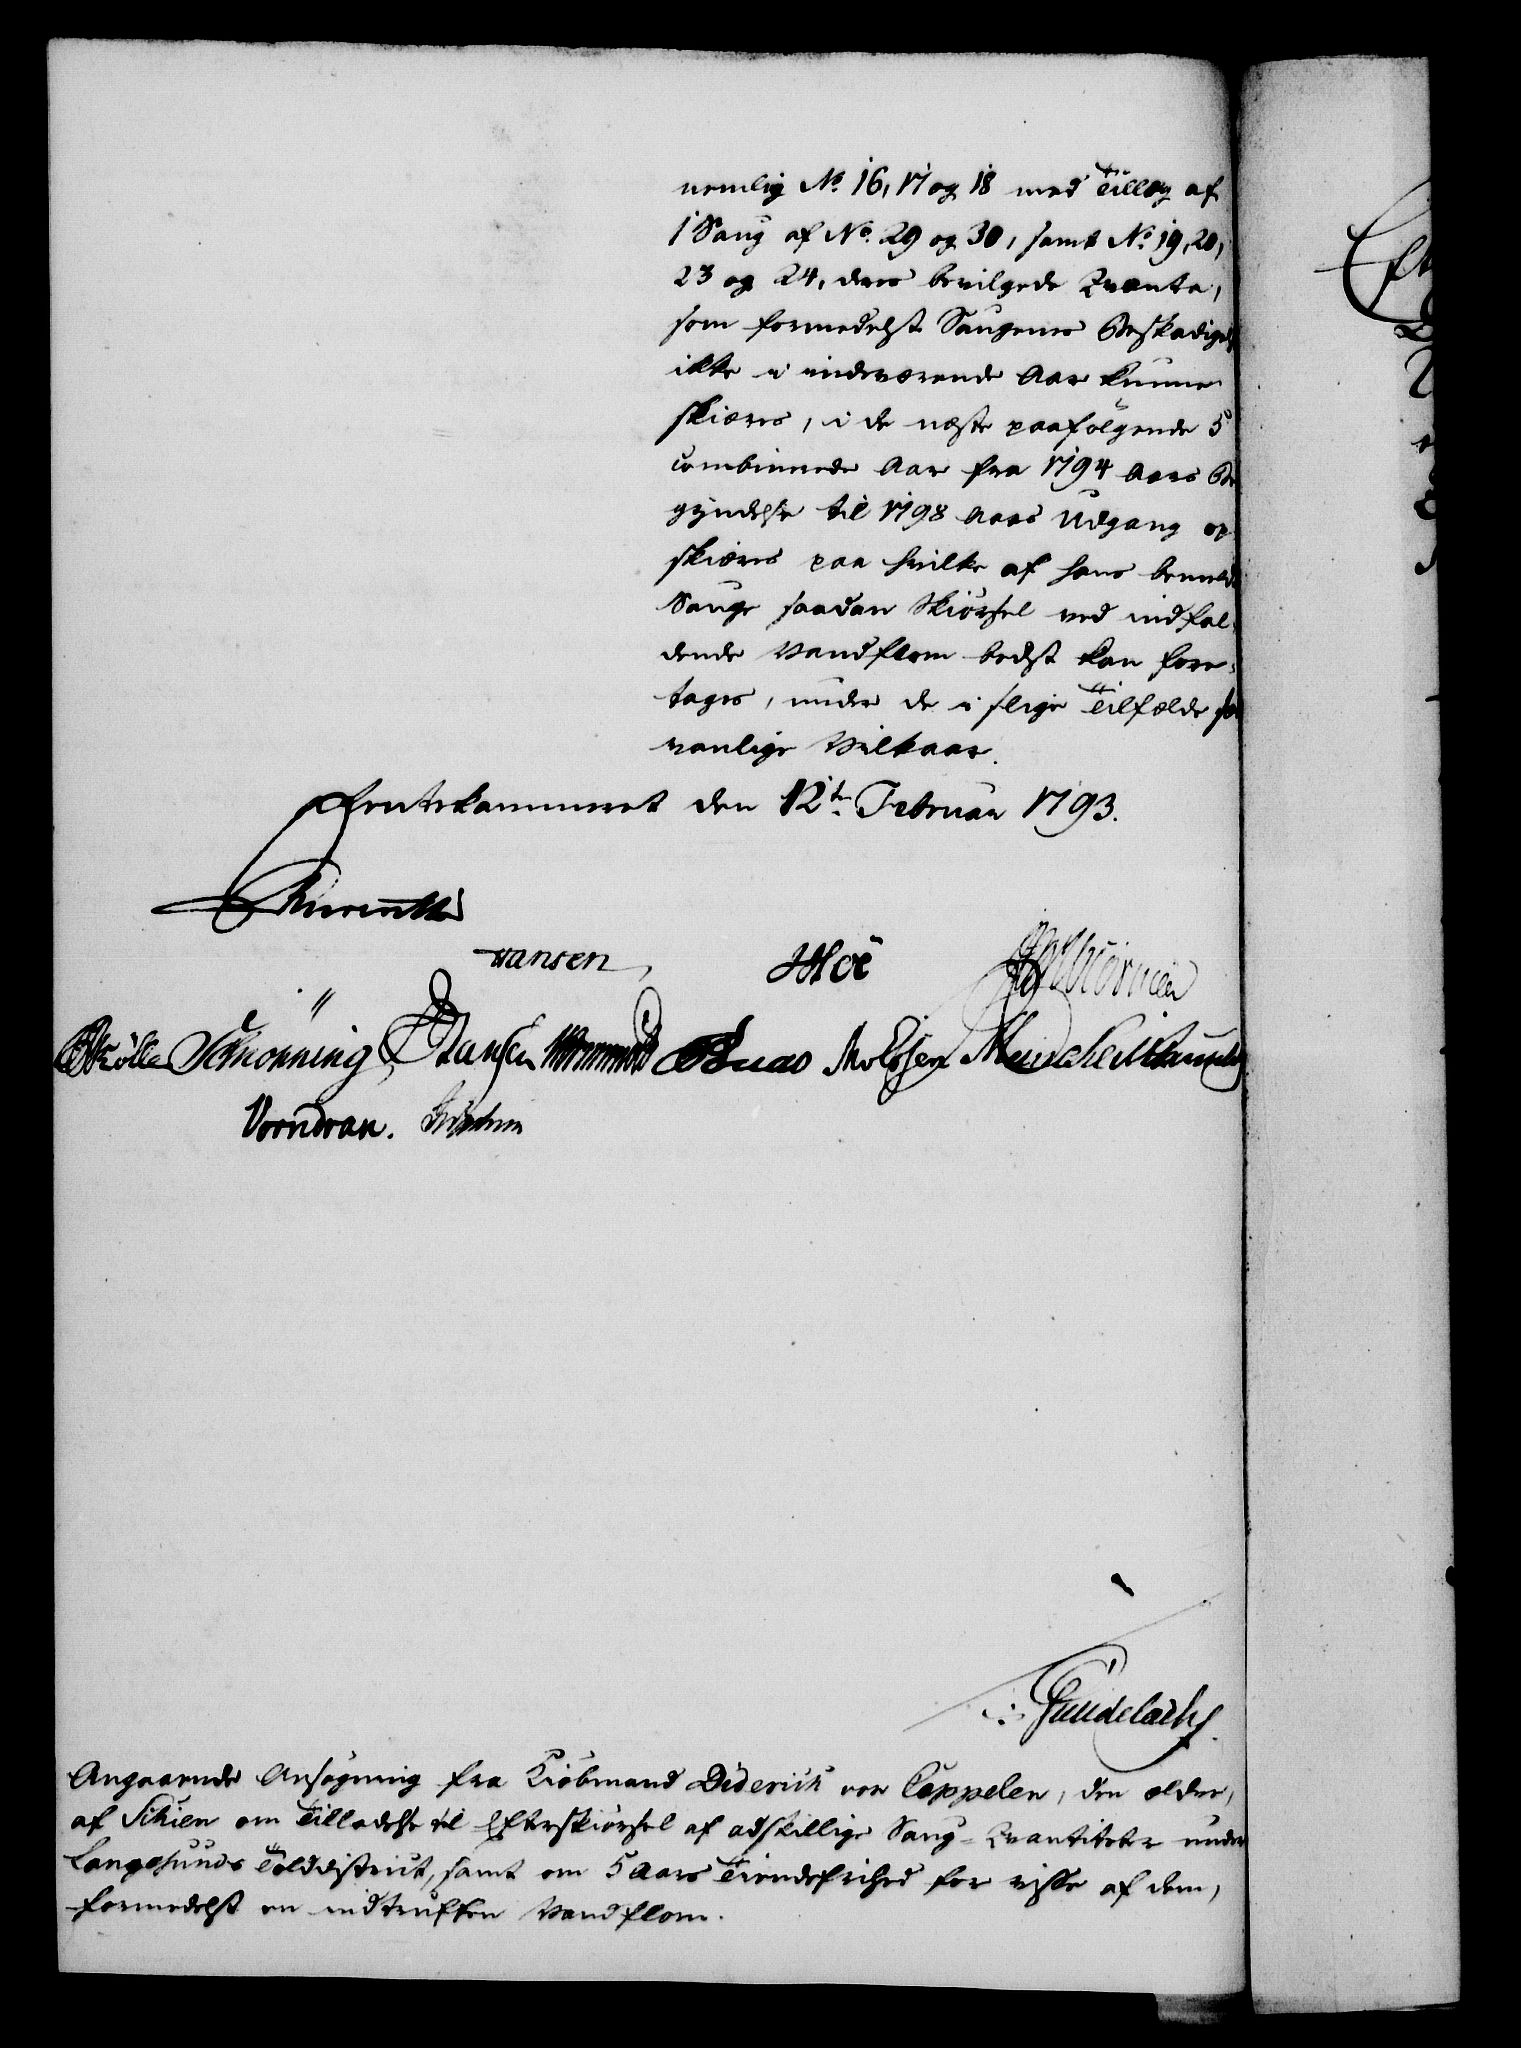 nemlig No. 16, 17 og 18 med Tillæg af
1 Saug af No. 29 og 30, samt No. 19, 20,
23 og 24, deres bevilgede Qvanta,
som formedelst Saugenes Beskadigel
ikke i indeværende Aar kunne
skiæres, i de næste paafølgende 5
combinerede Aar fra 1794 Aars Be
gyndelse til 1798 Aars Udgang op
skiæres paa hvilke af hans bemeldte
Sauge saadan Skiørsel ved indfal-
dende Vandflom bedst kan fore-
tages, under de i slige Tilfælde sæd
vanlige Vilkaar.
Rentekammeret den 12te Februar 1793.
Hansen
Schönning Hansen
Vorndran.
Gundelach
Angaaende Ansøgning fra Kiöbmand Diderich von Cappelen, den ældre,
af Skien om Tilladelse til Efterskiørsel af adskillige Saug-Qvantiteter under
Langesunds Tolddistrict, samt om 5 Aars Tiendefrihed for visse af dem,
formedelst en indtruffen Vandflom.